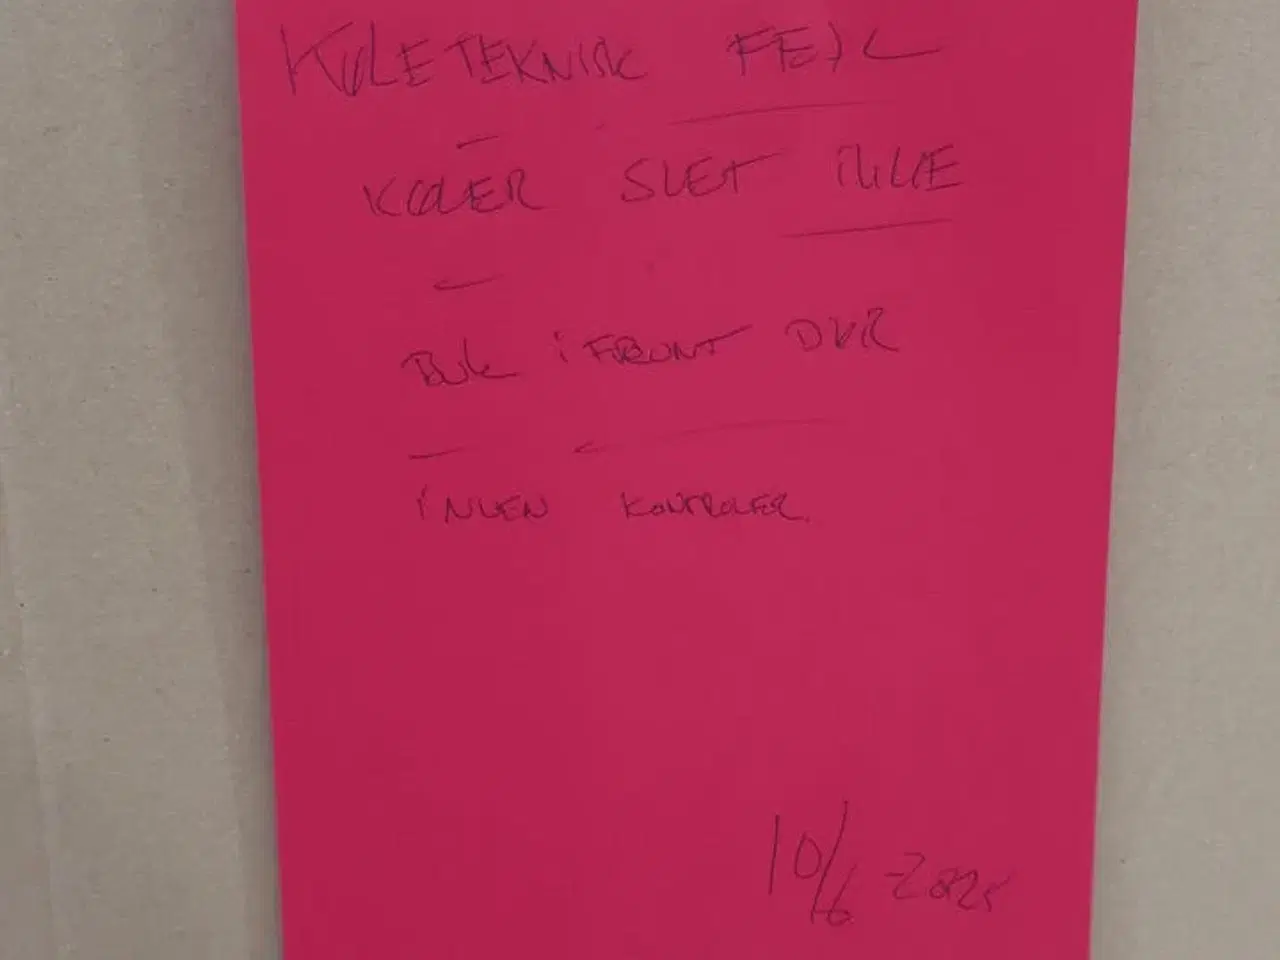 KØLETEKNISK FEJL
KØLER SLET IKKE
BUK i FRONT DØR
iNGEN KONTROLER.
10/6 2025